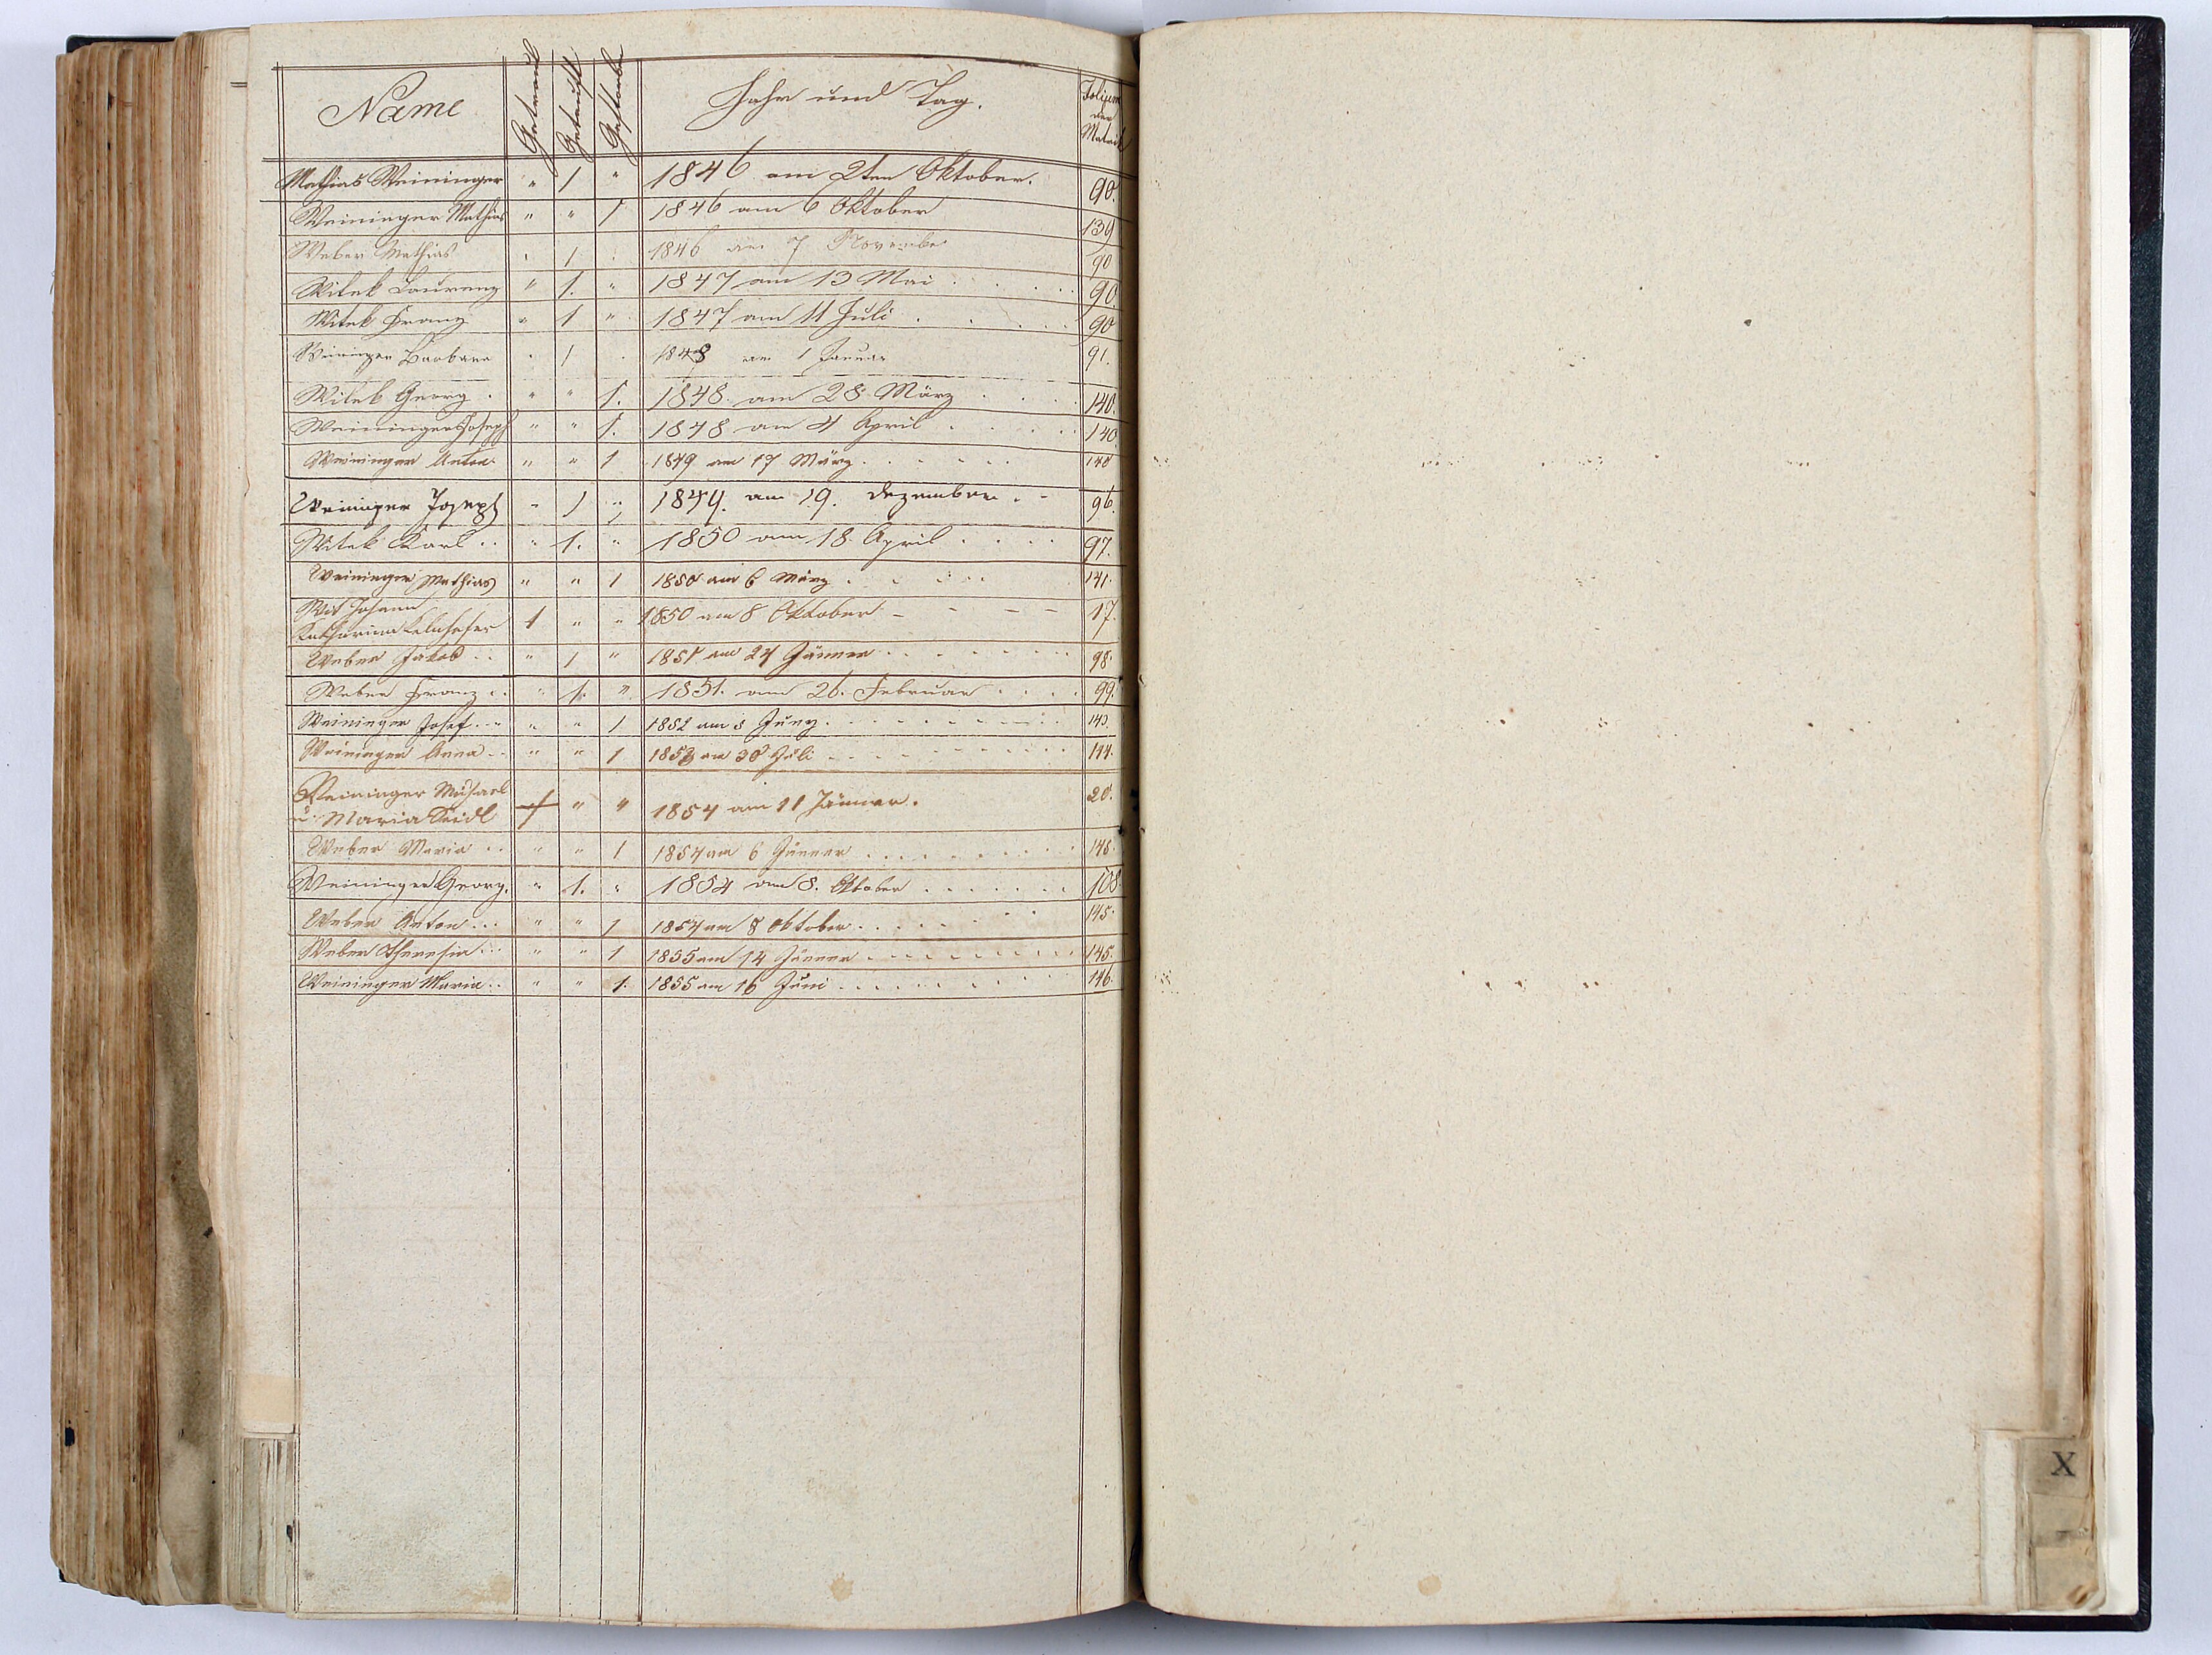 Name Getraut Getauft Gestorben Jahr und Tag. Folium der Matrik
Mathias Weininger " 1 " 1846 am 2ten Oktober. 90.
Weininger Mathias " " 1 1846 am 6 Oktober 139
Weber Mathias " 1 " 1846 am 7 November 90
Witek Laurenz " 1. " 1847 am 13 Mai . . . . . 90.
Witek Franz " 1 " 1847 am 11 Juli . . . . 90
Weininger Barbara " 1 " 1848 am 1 Januar 91.
Witek Georg . " " 1. 1848. am 28. März . . . . 140.
Weininger Joseph " " 1. 1848 am 4 April . . . . . 140.
Weininger Anton " " 1 1849 am 17 März . . . . . . 140
Weininger Joseph " 1 " 1849. am 19. Dezember. - 96.
Witek Karl . . " 1. " 1850 am 18. April . . . . 97.
Weininger Mathias " " 1 1850 am 6 März . . . . . 141.
Wit Johann
Katharina 1 " " 1850 am 8 Oktober - - - - 17.
Weber Jakob . . " 1 " 1851 am 24 Jänner . . . . . . . 98.
Weber Franz . . " 1. " 1851. am 26. Februar . . . . 99.
Weininger Josef . . " " 1 1852 am 5 . . . . . . . . 143.
Weininger Anna . . " " 1 am 30 Juli . . . . . . . . 144.
Weininger Michael
u. Maria Seidl 1 " " 1854 am 11 Jänner. 20.
Weber Maria . . " " 1 1854 am 6 Jänner . . . . . . . . . 145
Weininger Georg. " 1. " 1854 am 8. Oktober . . . . . . . 108
Weber Anton . . . " " 1 1854 am 8 Oktober . . . . . . . 145.
Weber Theresia . . " " 1 1855 am 14 Jänner . . . . . . . . . 145.
Weininger Maria . . " " 1. 1855 am 16 Juni . . . . . . . . . 146.
X